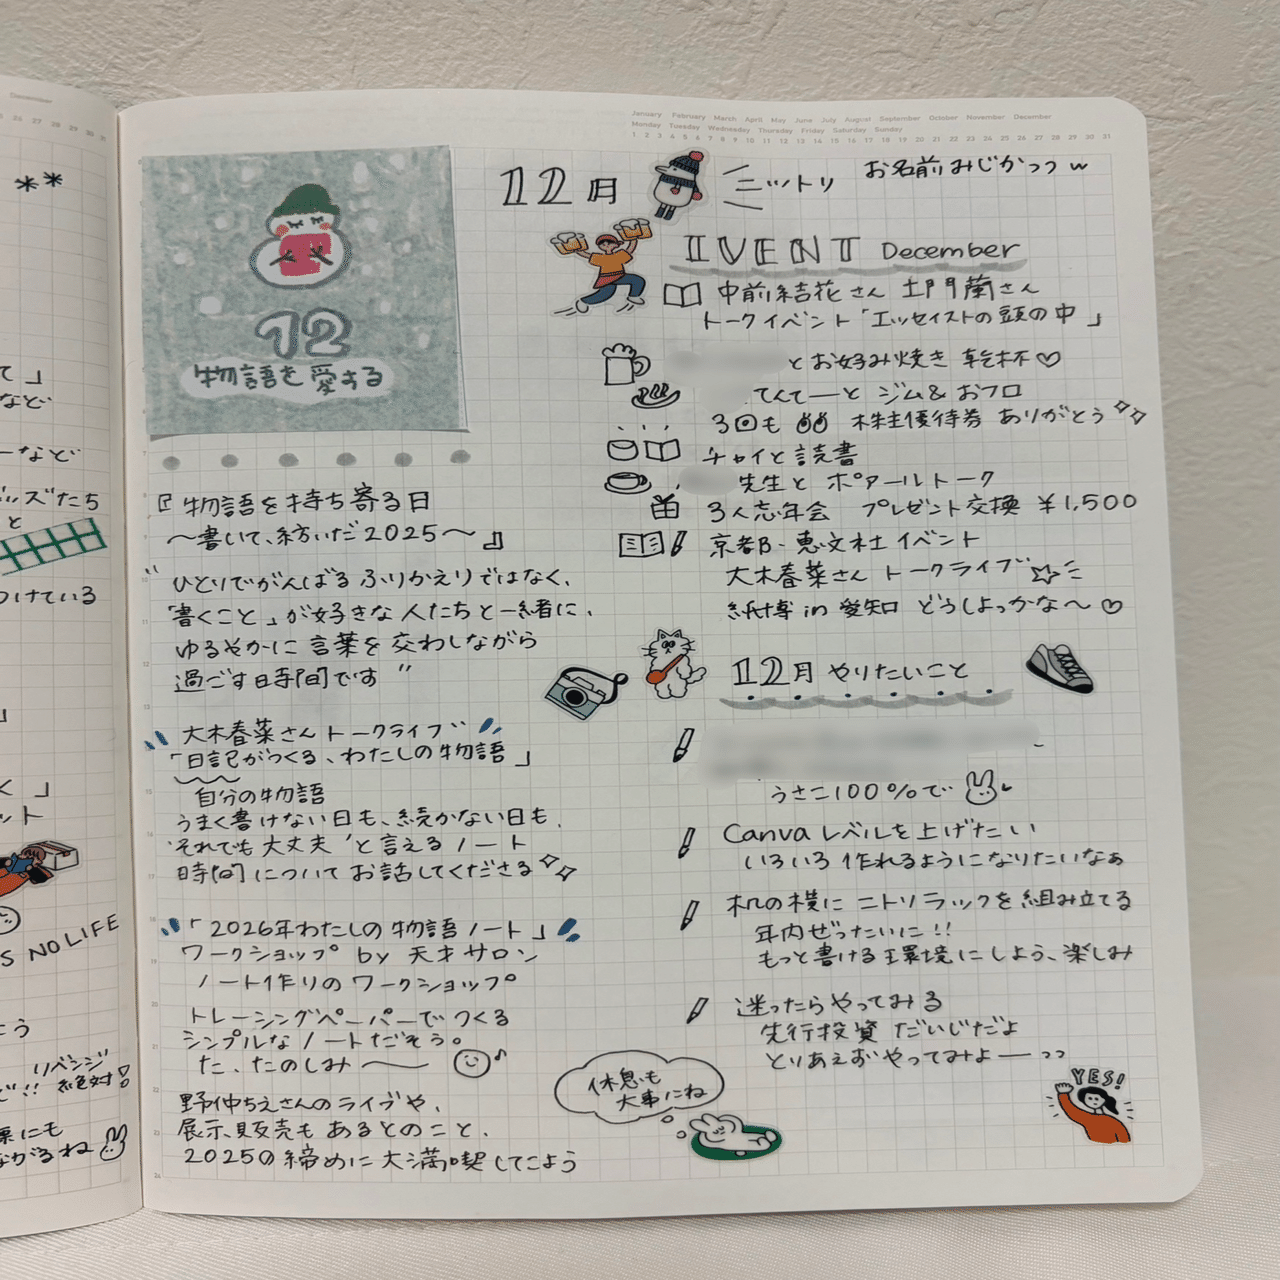 December
26 27 28 29 30 31
**
て」
など
ーなど
ズたち
と
つけている
」
く」
ット
S NO LIFE
とう
リベンジ
ど!! 絶対!
にも
ながるね
January February March April May June July August September October November December
Monday Tuesday Wednesday Thursday Friday Saturday Sunday
1 2 3 4 5 6 7 8 9 10 11 12 13 14 15 16 17 18 19 20 21 22 23 24 25 26 27 28 29 30 31
12
物語を愛する
『物語を持ち寄る日
〜書いて、紡いだ2025〜』
"ひとりでがんばるふりかえりではなく、
「書くこと」が好きな人たちと一緒に、
ゆるやかに言葉を交わしながら
過ごす時間です"
大木春菜さんトークライブ
「日記がつくる、わたしの物語」
自分の物語
うまく書けない日も、続かない日も、
それでも大丈夫'と言えるノート
時間についてお話してくださる
「2026年わたしの物語ノート」
ワークショップ by 天才サロン
ノート作りのワークショップ
トレーシングペーパーでつくる
シンプルなノートだそう。
た、たのしみ〜
野仲ちえさんのライブや、
展示、販売もあるとのこと、
2025の締めに大満喫してこよう
12月
ミットリ
お名前みじかっっw
IVENT December
中前結花さん 土門蘭さん
トークイベント「エッセイストの頭の中」
とお好み焼き 乾杯♡
てんてーと ジム&おフロ
3回も 株主優待券 ありがとう
チャイと読書
先生と ポアールトーク
3人忘年会 プレゼント交換 ¥1,500
京都・恵文社イベント
大木春菜さん トークライブ
紙博 in 愛知 どうしよっかな〜♡
12月 やりたいこと
うさこ100%で
Canvaレベルを上げたい
いろいろ作れるようになりたいなぁ
机の横にニトリラックを組み立てる
年内ぜったいに!!
もっと書ける環境にしよう、楽しみ
迷ったらやってみる
先行投資 だいじだよ
とりあえずやってみよーっっ
休息も
大事にね
YES!